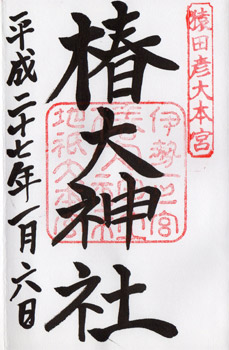 猿田彦大本宮
椿大神社
伊勢一宮
地祇大本宮
平成二十七年一月六日